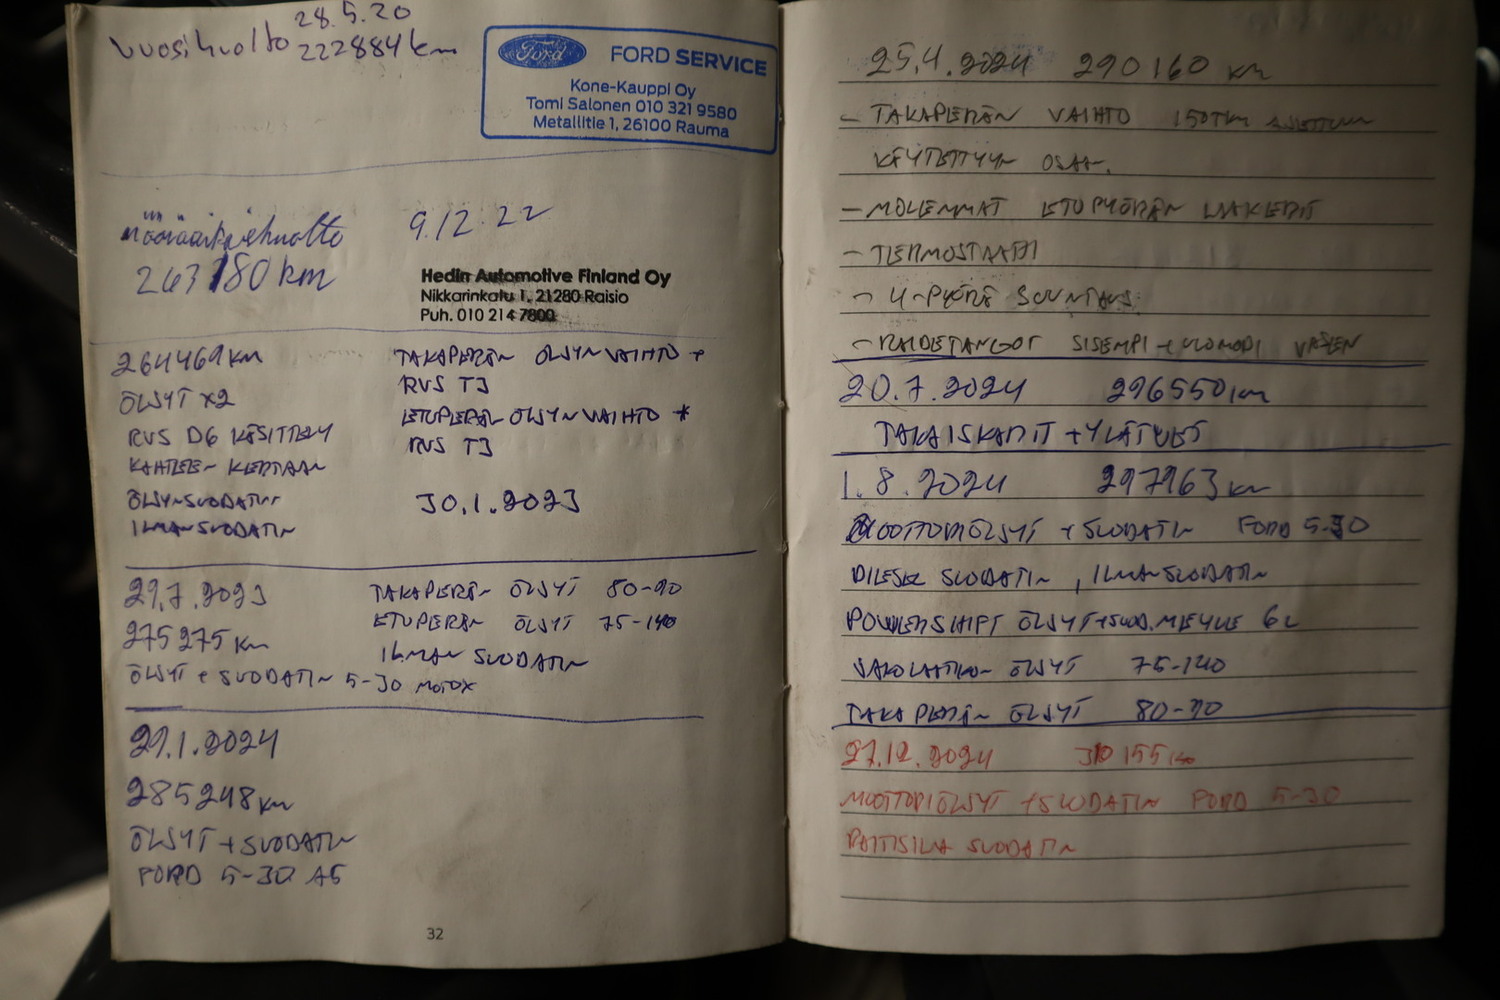 28.5.20
vuosihuolto 222884 km
Ford
FORD SERVICE
Kone-Kauppi Oy
Tomi Salonen 010 321 9580
Metallitie 1, 26100 Rauma
määräaikaishuolto
9.12.22
263180 km
Hedin Automotive Finland Oy
Nikkarinkatu 1, 21280 Raisio
Puh. 010 214 7800
264469 KM
ÖLJYT X2
RVS D6 KÄSITTELY
KAHTEEN KERTAAN
ÖLJYNSUODATIN
ILMANSUODATIN
TAKAPERÄN ÖLJYNVAIHTO +
RVS T3
ETUPERÄN ÖLJYNVAIHTO +
RVS T3
30.1.2023
29.7.2023
275275 KM
ÖLJYT + SUODATIN 5-30 MOTOX
TAKAPERÄN ÖLJYT 80-90
ETUPERÄN ÖLJYT 75-140
ILMAN SUODATIN
29.1.2024
285248 KM
ÖLJYT + SUODATIN
FORD 5-30 A5
32
25.4.2024 290160 KM
- TAKAPERÄN VAIHTO 150TKM AJETTUUN
KÄYTETTYYN OSAAN.
- MOLEMMAT ETUPYÖRÄN LAAKERIT
- TERMOSTAATTI
- 4-PYÖRÄ SUUNTAUS
- RAIDETANGOT SISEMPI + ULOMPI VASEN
20.7.2024 296550 KM
TAKAISKARIT + YLÄTUET
1.8.2024 297963 KM
MOOTTORIÖLJYT + SUODATIN FORD 5-30
DIESEL SUODATIN, ILMANSUODATIN
POWERSHIFT ÖLJYT+SUOD. MEYLE 6L
JAKOLAATIKON ÖLJYT 75-140
TAKAPERÄN ÖLJYT 80-90
27.12.2024 310155 KM
MOOTTORIÖLJYT + SUODATIN FORD 5-30
RAITISILMA SUODATIN